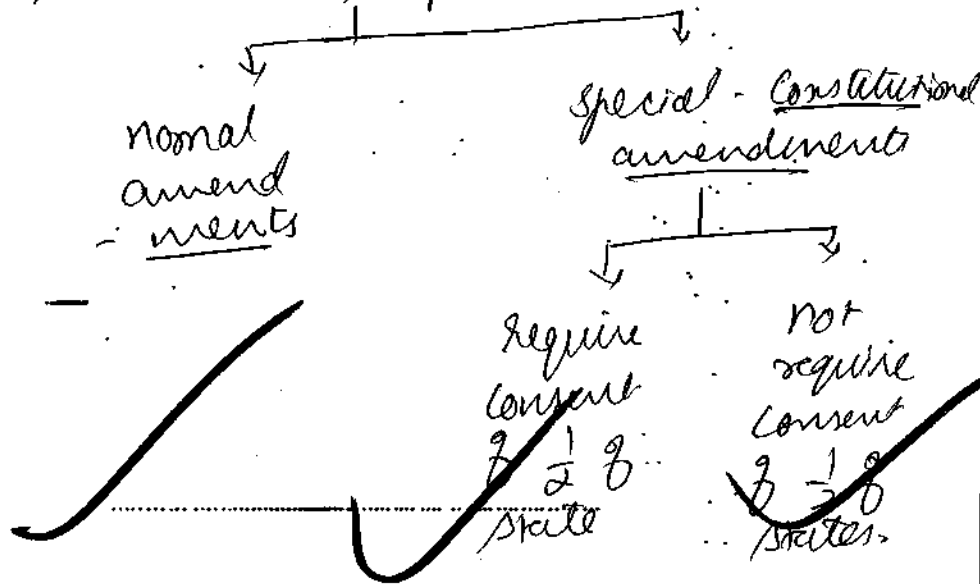 normal
amend
- ments
special - Constitutional
amendments
require
consent
of 1/2 of
state
not
require
consent
of 1/2 of
states.